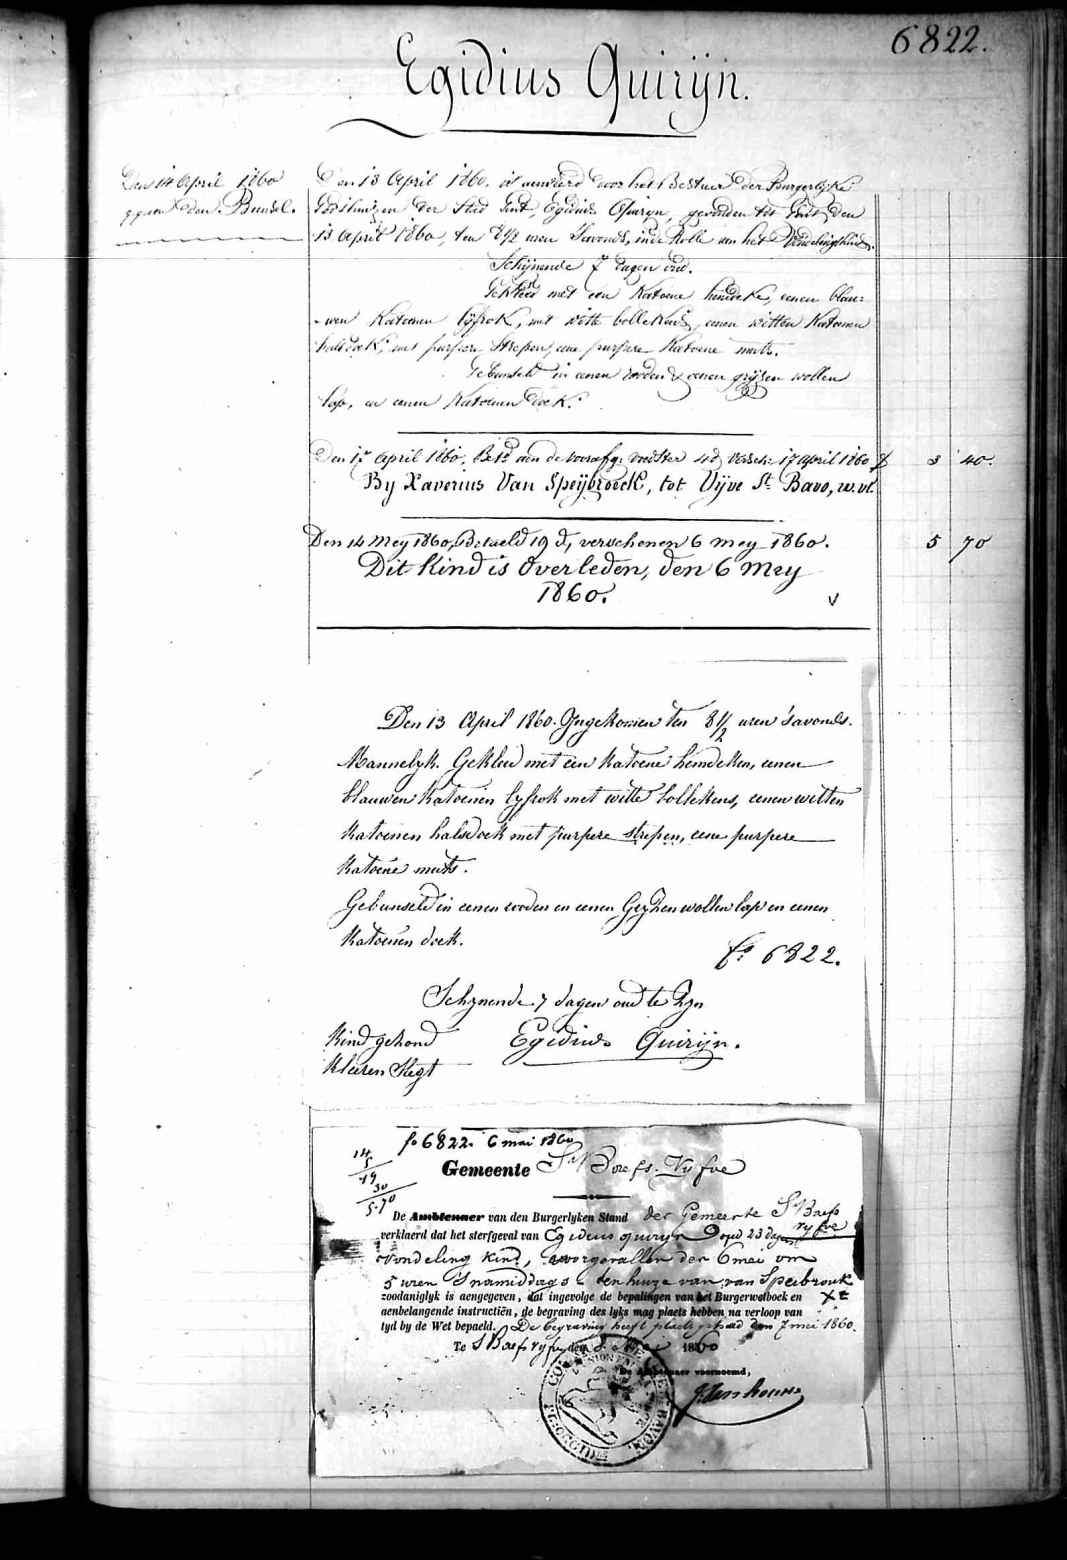 6822.
Egidius Quirijn.
Den 14 April 1860
den Bundel.
Den 13 April 1860. is aenveerd door het Bestuur der Burgerlyke
Godshuizen der Stad Gent, Egidius Quiryn, gevonden tot Gent den
13 April 1860, ten 8 1/2 uren Savonds, in de Rolle van het Vondelingshuis.
Schijnende 7 dagen oud.
Gekleed met een Katoene hemdeke, eenen blau-
wen Katoenen lijfrok, met witte bollekens, eenen witten Katoenen
halsdoek, met purpere strepen, eene purpere Katoene muts.
Gebunseld in eenen rooden & eenen grijsen wollen
lap, en eenen Katoenen doek.
Den 17 April 1860. Betd aen de voorafg. voedster 4d versch. 17 april 1860 3 40.
By Xaverius Van Speijbroeck, tot Vijve St Bavo, w.vl.
Den 14 Mey 1860, Betaeld 19 d, verschenen 6 mey 1860. 5 70
Dit Kind is Overleden, den 6 Mey
1860.
Den 13 April 1860. Ingekomen ten 8 1/2 uren s'avonds.
Mannelyk. Gekleed met een Katoene hemdeken, eenen
blauwen Katoenen lyfrok met witte bollekens, eenen witten
Katoenen halsdoek met purpere strepen, eene purpere
Katoene muts.
Gebunseld in eenen rooden en eenen Gryzen wollen lap en eenen
Katoenen doek.
fo. 6822.
Schynende 7 dagen oud te Zyn
Kind gezond Egidius Quirijn.
Kleeren Slegt
fo 6822. 6 mai 1860
14
5
19
30
5.70
Gemeente St Baefs Vyfve
De Ambtenaer van den Burgerlyken Stand der Gemeente St Baefs
vyfve
verklaerd dat het sterfgeval van Egidius quiryn oud 23 dagen
vondeling Kind, voorgevallen den 6 mei om
5 uren s'namiddags ten huize van van Speibrouk
zoodaniglyk is aengegeven, dat ingevolge de bepalingen van het Burgerwetboek en Xe
aenbelangende instructiën, de begraving des lyks mag plaets hebben na verloop van
tyd by de Wet bepaeld. De begraving heeft plaets gehad den 7 mei 1860.
Te St Baefs vyfve den 8 Mei 1860
De Ambtenaer voornoemd,